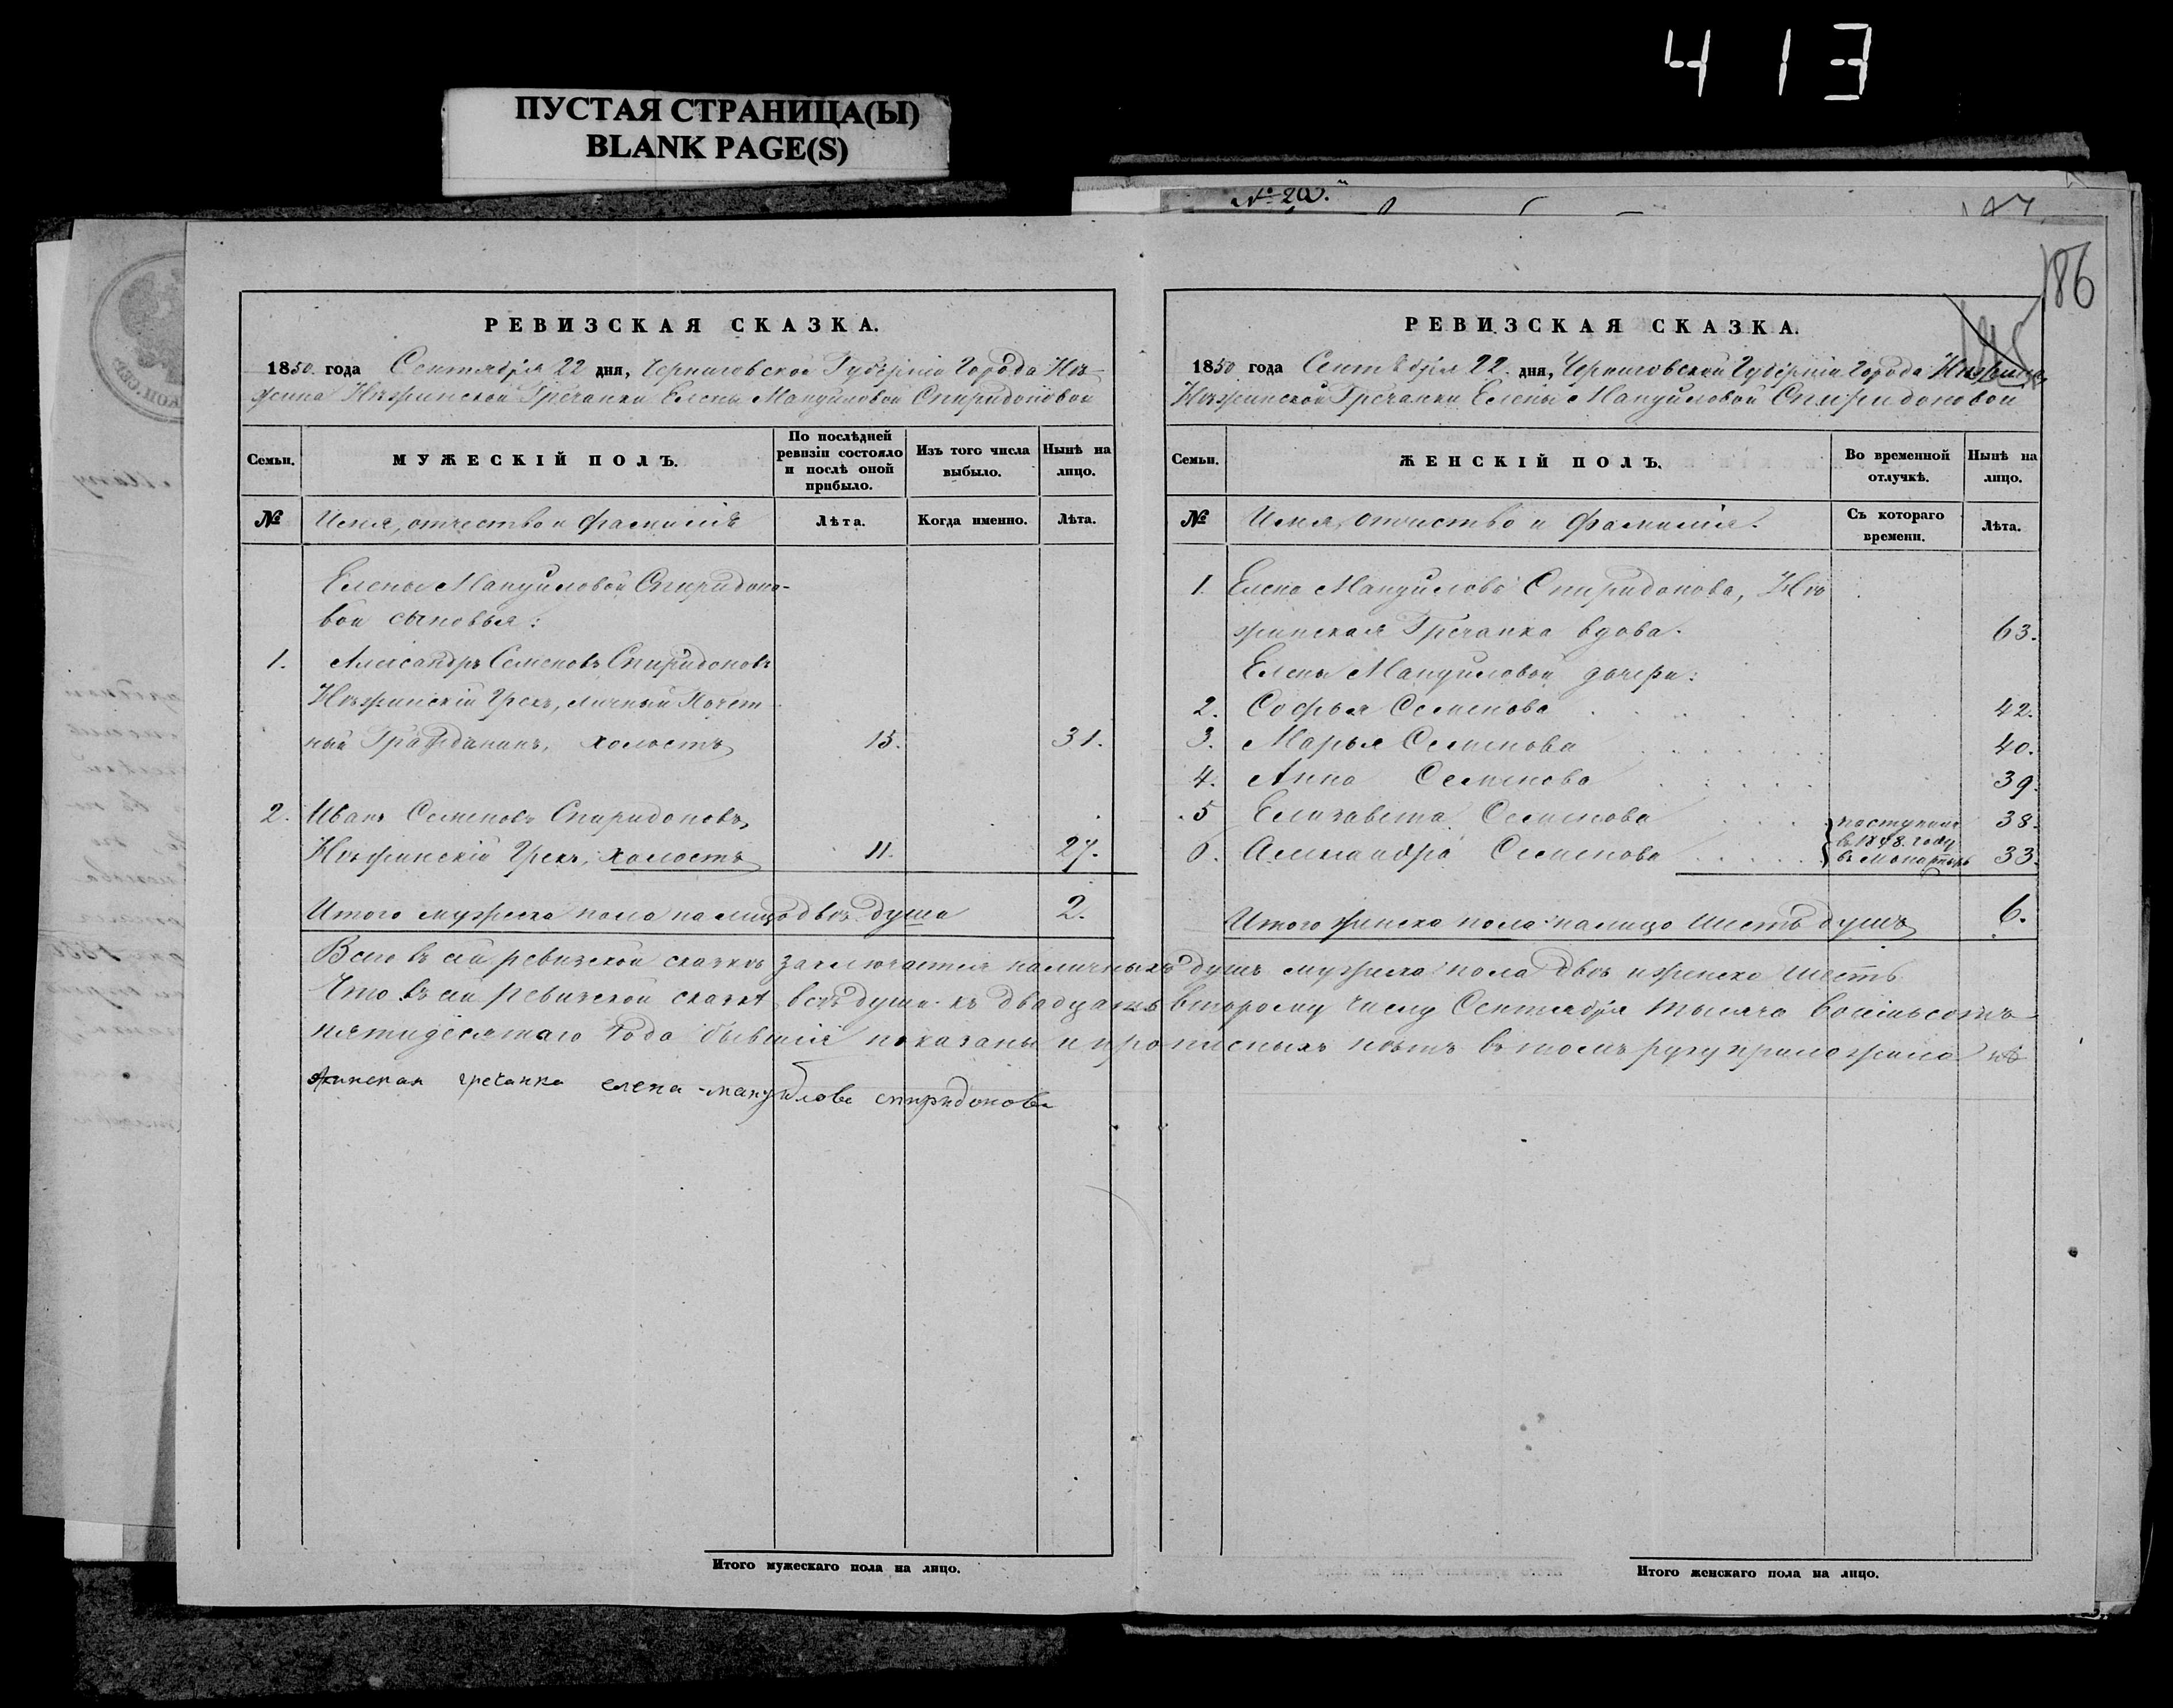 413
ПУСТАЯ СТРАНИЦА(Ы)
BLANK PAGE(S)
№ 20.
186
РЕВИЗСКАЯ СКАЗКА.
1850 года Сентября 22 дня, Черниговской Губерніи Города Нѣ-
жина Нѣжинской Гречанки Елены Мануиловой Спиридоновой
Семьи.
МУЖЕСКІЙ ПОЛЪ.
По послѣдней ревизіи состояло и послѣ оной прибыло.
Изъ того числа выбыло.
Нынѣ на лицо.
№
Имя, отчество и фамилія
Лѣта.
Когда именно.
Лѣта.
Елены Мануиловой Спиридоно-
вой сыновья:
1. Александръ Семеновъ Спиридоновъ
Нѣжинскій Грекъ, личный Почет-
ный Гражданинъ, холостъ 15. 31.
2. Иванъ Семеновъ Спиридоновъ,
Нѣжинскій Грекъ, холостъ 11. 27.
Итого мужеска пола налицо двѣ душа 2.
РЕВИЗСКАЯ СКАЗКА.
1850 года Сентября 22 дня, Черниговской Губерніи Города Нѣжина,
Нѣжинской Гречанки Елены Мануиловой Спиридоновой
Семьи.
ЖЕНСКІЙ ПОЛЪ.
Во временной отлучкѣ.
Нынѣ на лицо.
№
Имя, отчество и фамилія.
Съ котораго времени.
Лѣта.
1. Елена Мануилова Спиридонова, Нѣ
жинская Гречанка вдова. 63.
Елены Мануиловой дочери:
2. Софья Семенова 42.
3. Марья Семенова 40.
4. Анна Семенова 39.
5 Елизавета Семенова 38.
6. Александра Семенова 33.
поступили
в 1848 году
в монартырь
Итого женска пола налицо шесть душъ 6.
Всего въ сей ревизской сказкѣ заключается наличныхъ душъ мужеска пола двѣ и женска шесть
Что въ сей Ревизской сказкѣ всѣ души къ двадцать второму числу Сентября тысяча восемьсотъ
пятидесятаго года бывшіе показаны и прописныхъ нѣтъ въ томъ руку приложила нѣ
жинская гречанка елена мануйлова спиридонова
Итого мужескаго пола на лицо.
Итого женскаго пола на лицо.